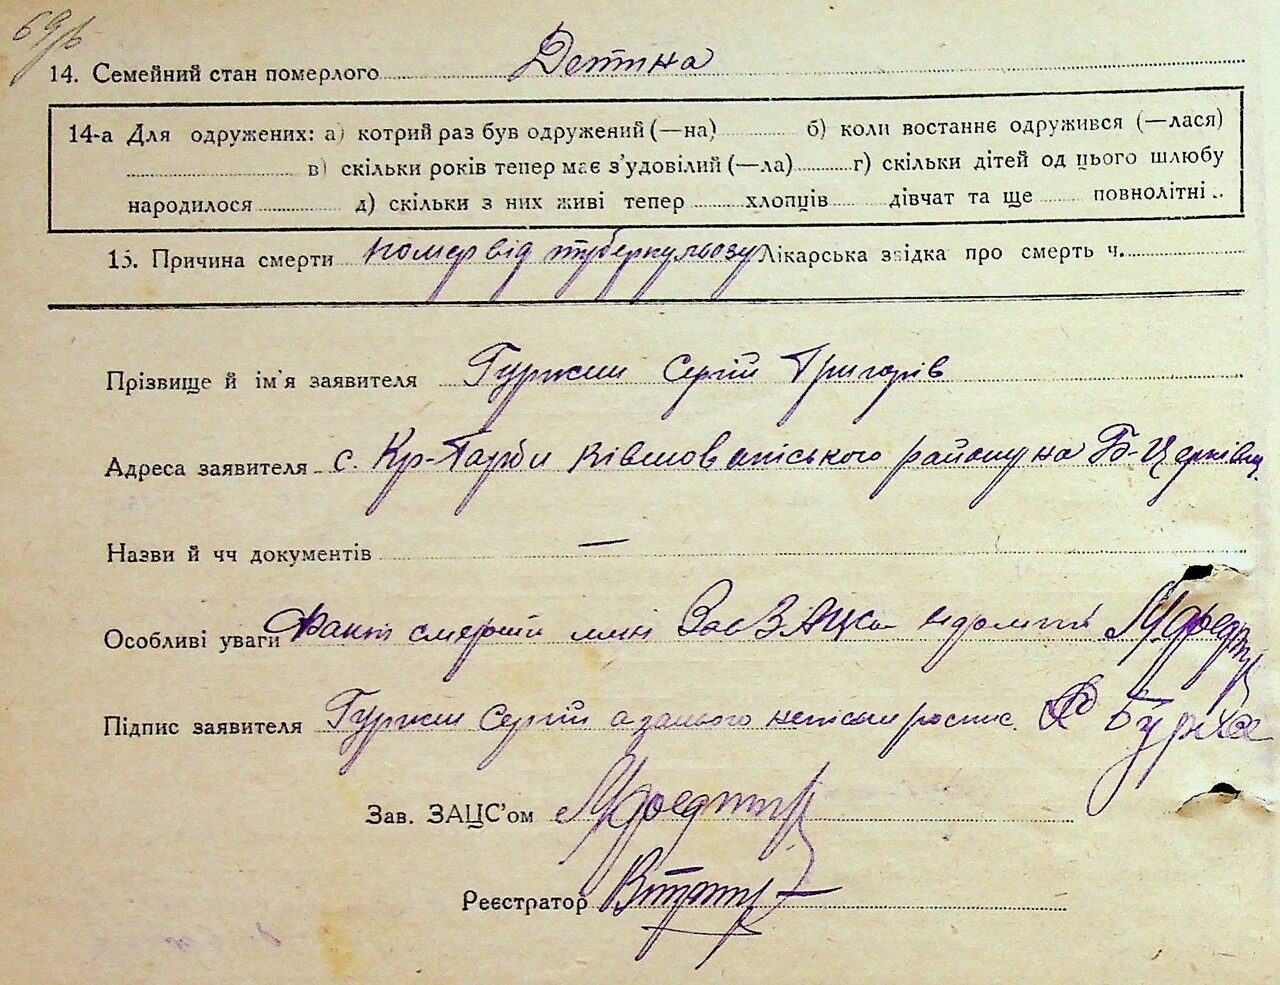 69/в
14. Семейний стан померлого Детина
14-а Для одружених: а) котрий раз був одружений (—на) б) коли востаннє одружився (—лася)
в) скільки років тепер має з'удовілий (—ла) г) скільки дітей од цього шлюбу
народилося д) скільки з них живі тепер хлопців дівчат та ще повнолітні
15. Причина смерти помер від туберкульозу Лікарська звідка про смерть ч.
Прізвище й ім'я заявителя Гуржии Сергій Григорів
Адреса заявителя с. Кр-Гарби району на Б-Церківщ.
Назви й чч документів —
Особливі уваги Факт смерти мині Зав ЗАЦСа відомий
Підпис заявителя Гуржии Сергій а занього неписьм роспис.
Зав. ЗАЦС'ом
Реєстратор